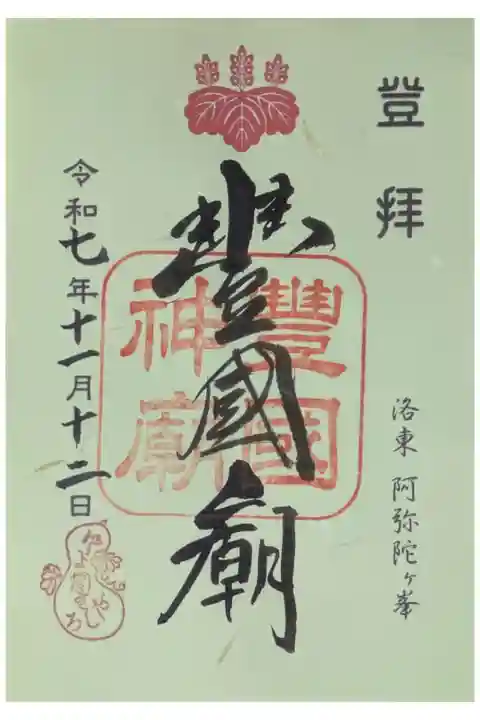 登拝
洛東 阿弥陀ヶ峯
豐國廟
豐國
神廟
令和七年十一月十二日